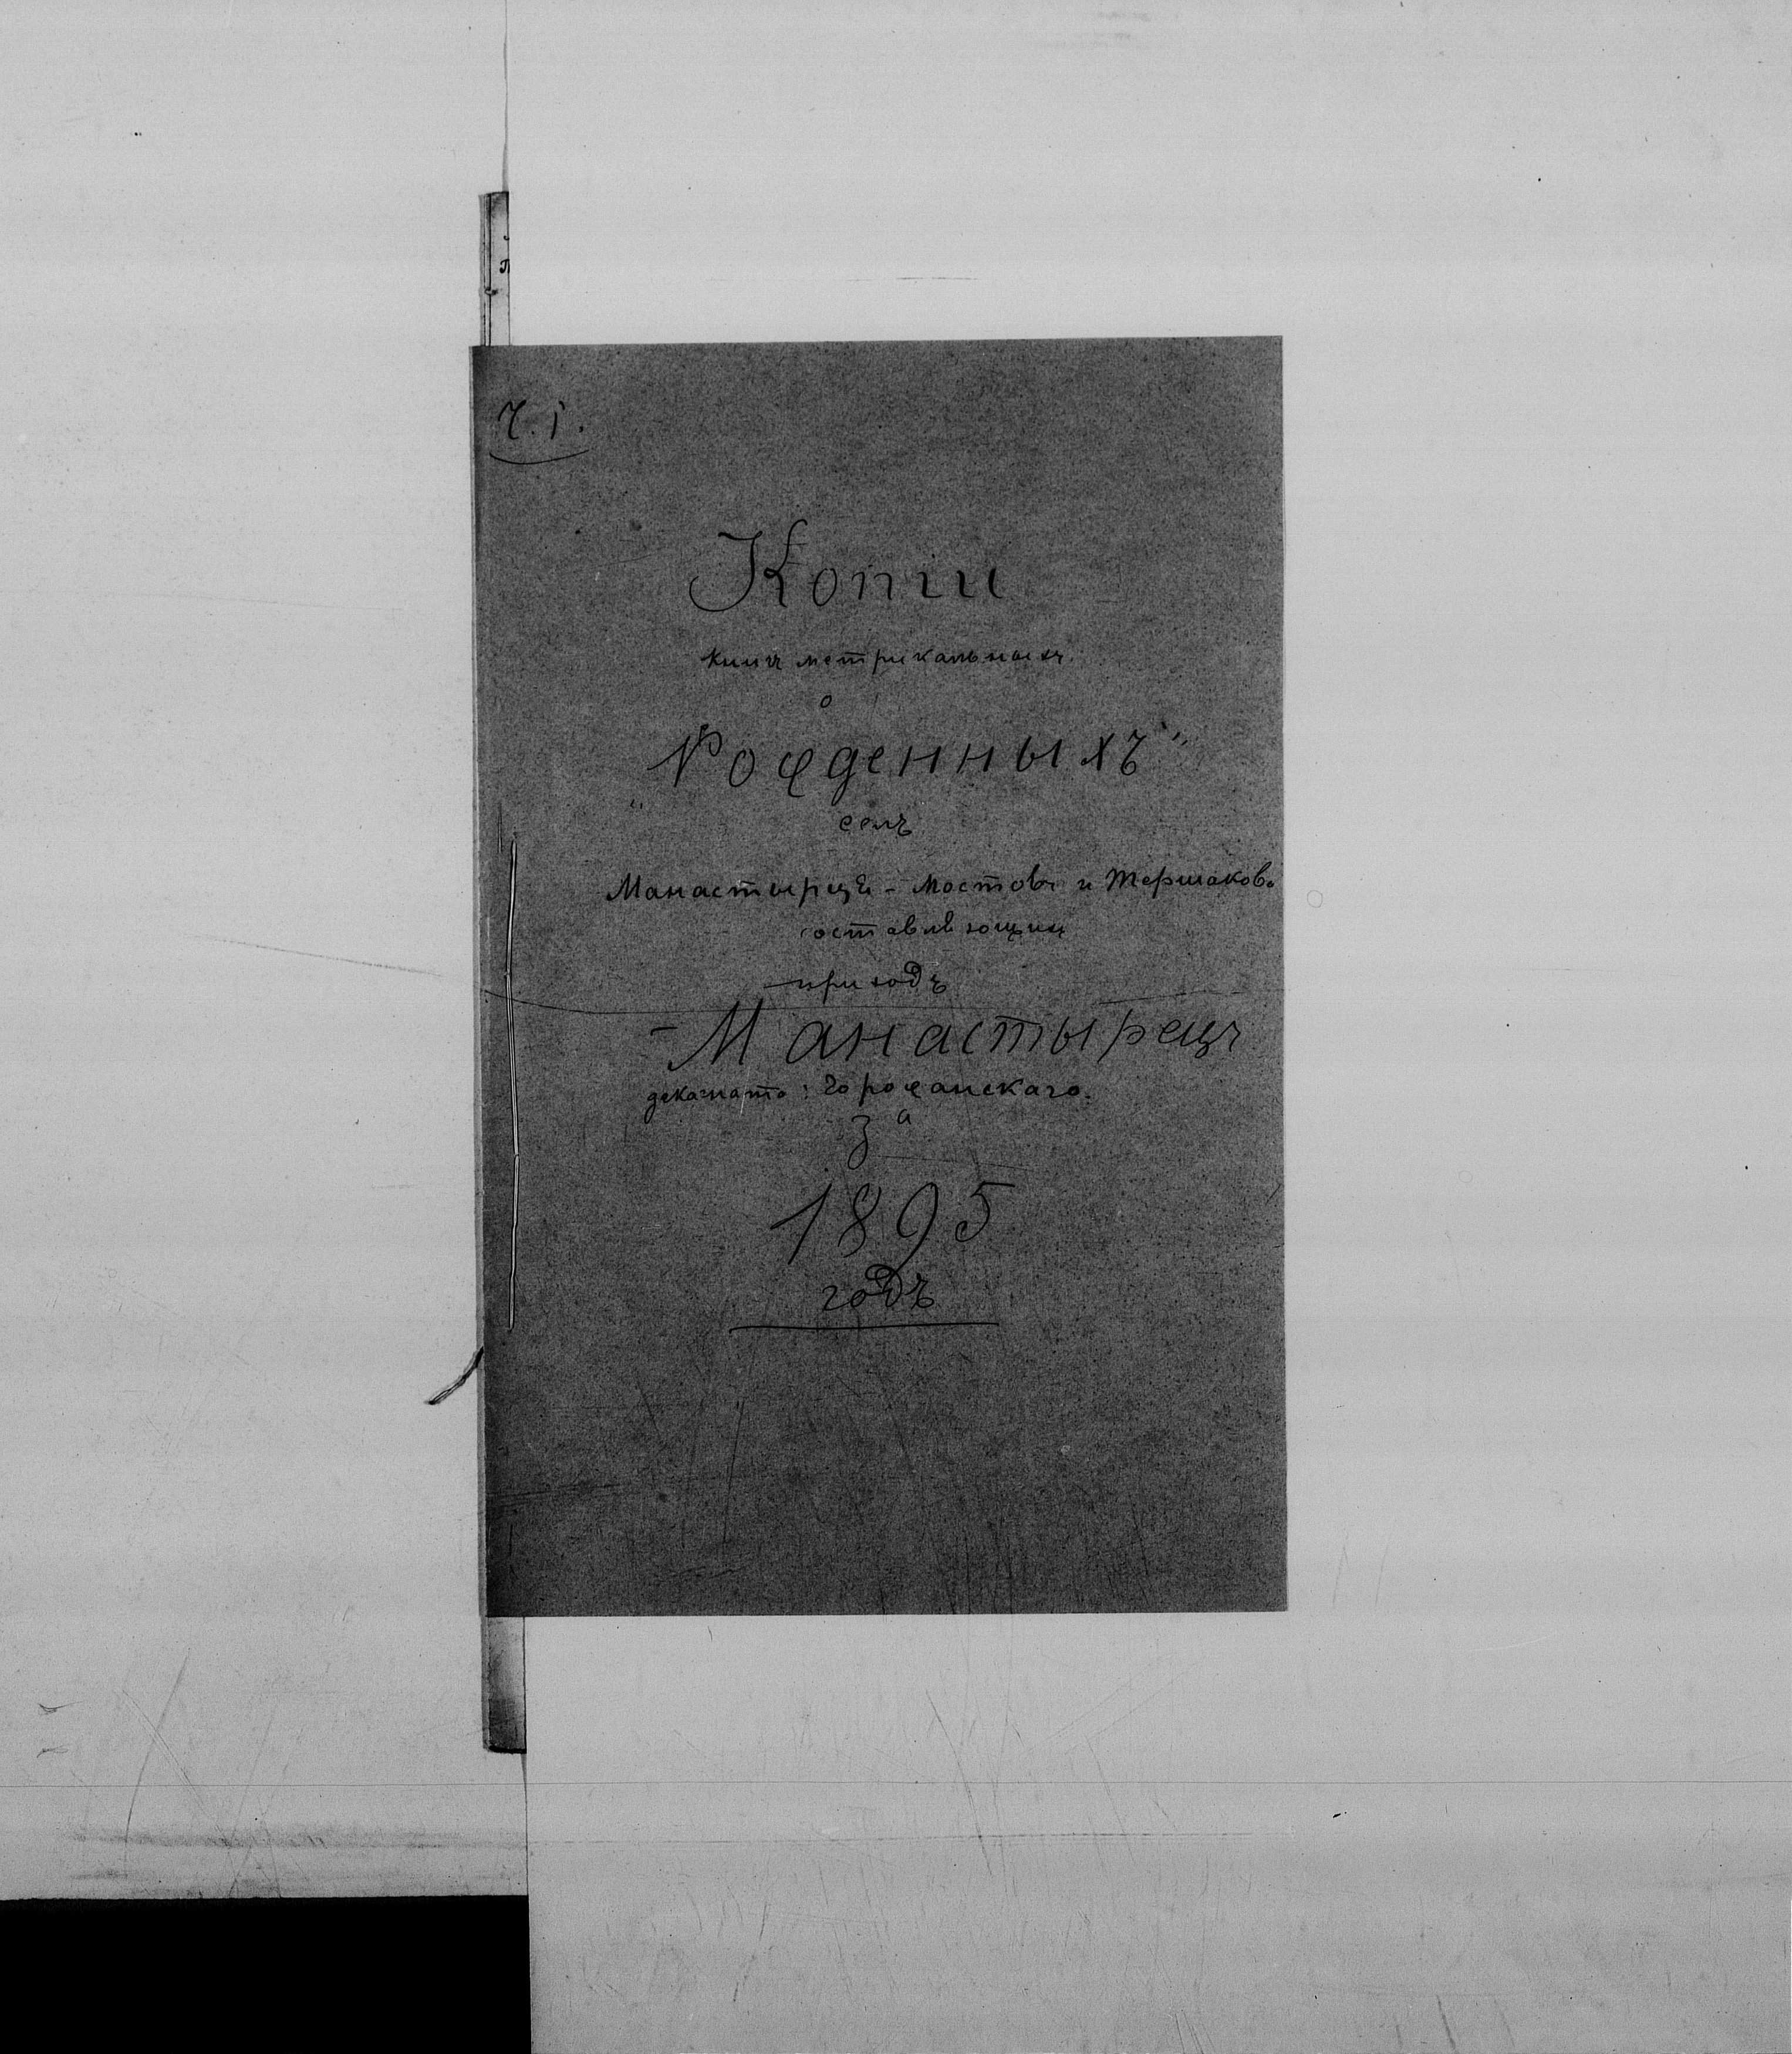 Ч. I.
Копіи
книгъ метрикальныхъ
о
"Рожденныхъ"
селъ
Манастырецъ - Мостовъ и Тершаковъ
составляющихъ
приходъ
- Манастырецъ
деканата: Горожанскаго.
за
1895
годъ